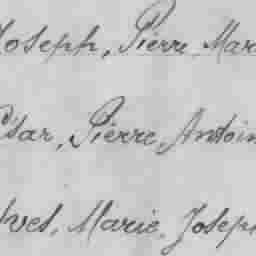 Joseph, Pierre Mar
César, Pierre, Antoin
Yves, Marie, Joseph